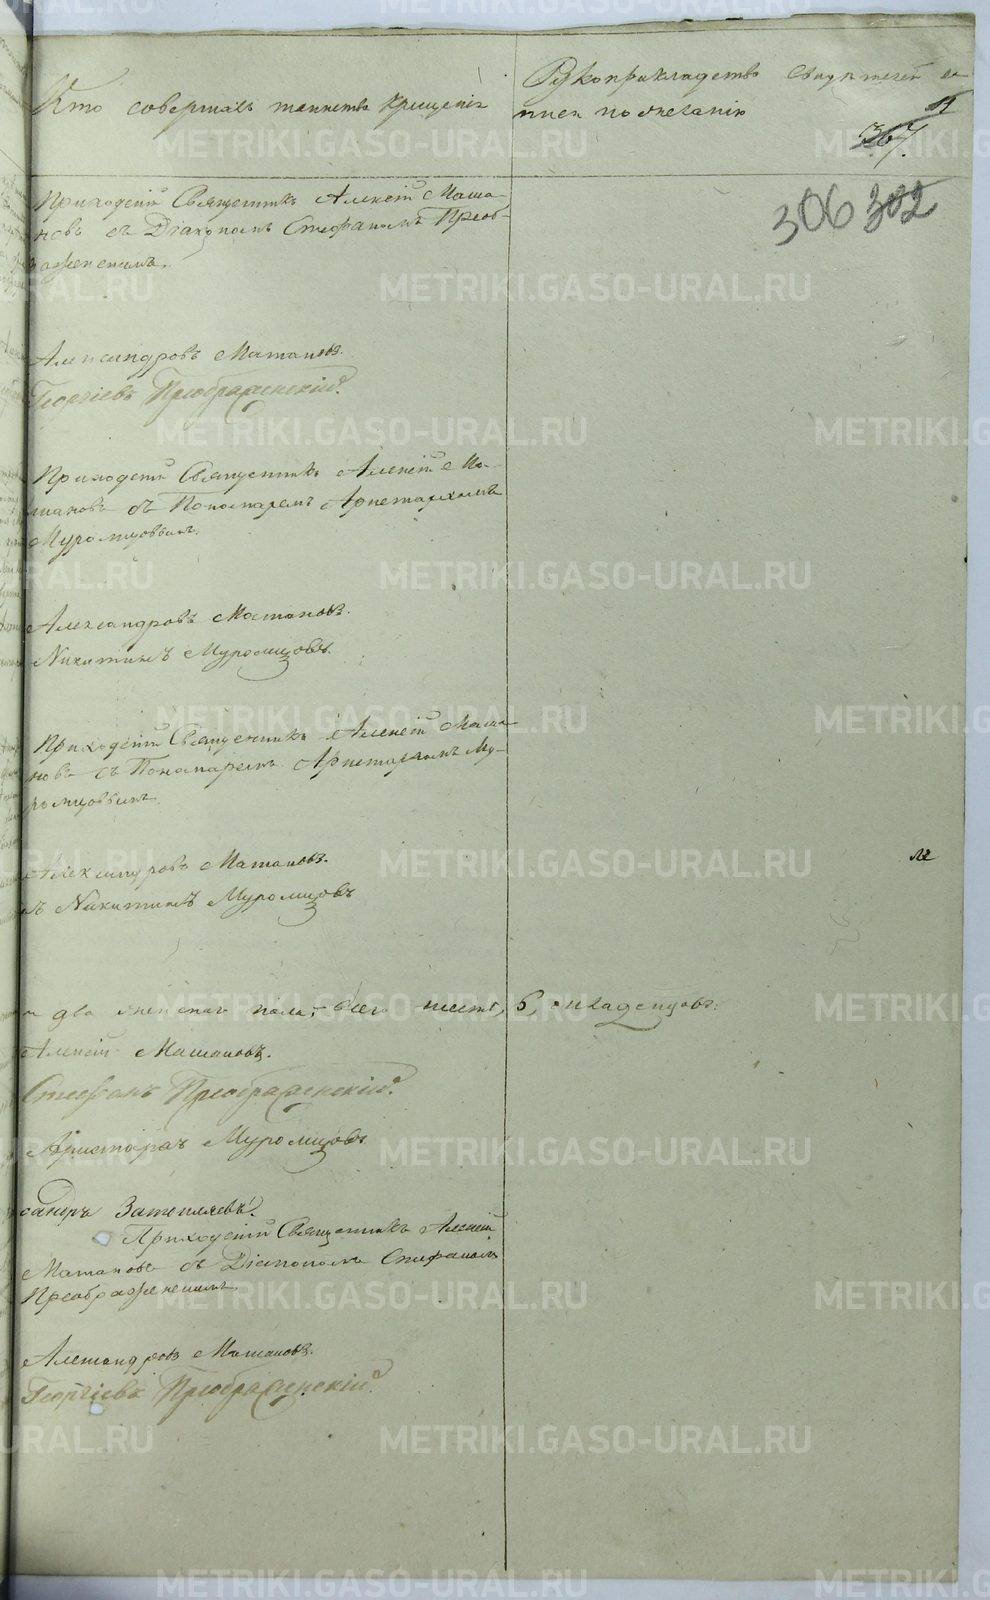 Кто совершалъ таинство крещенія
Рукоприкладство свидѣтелей за-
писи по желанію
367.
306 302
Приходскій Священникъ Алексѣй Маша-
новъ съ Діакономъ Стефаномъ Преоб-
раженскимъ.
Александровъ Машановъ.
Георгіевъ Преображенскій.
Приходскій Священникъ Алексѣй Ма-
шановъ съ Пономаремъ Аристархомъ
Муромцовымъ.
Александровъ Машановъ.
Никитинъ Муромцовъ.
Приходскій Священникъ Алексѣй Маша-
новъ съ Пономаремъ Аристархомъ Му-
ромцовымъ.
Александровъ Машановъ.
Никитинъ Муромцовъ
и два женскаго пола, всего шесть, 6, младенцовъ.
Алексѣй Машановъ.
Стефанъ Преображенскій.
Аристархъ Муромцовъ
сандръ
Приходскій Священникъ Алексѣй
Машановъ съ Діакономъ Стефаномъ
Преображенскимъ.
Александровъ Машановъ.
Георгіевъ Преображенскій.
METRIKI.GASO-URAL.RU